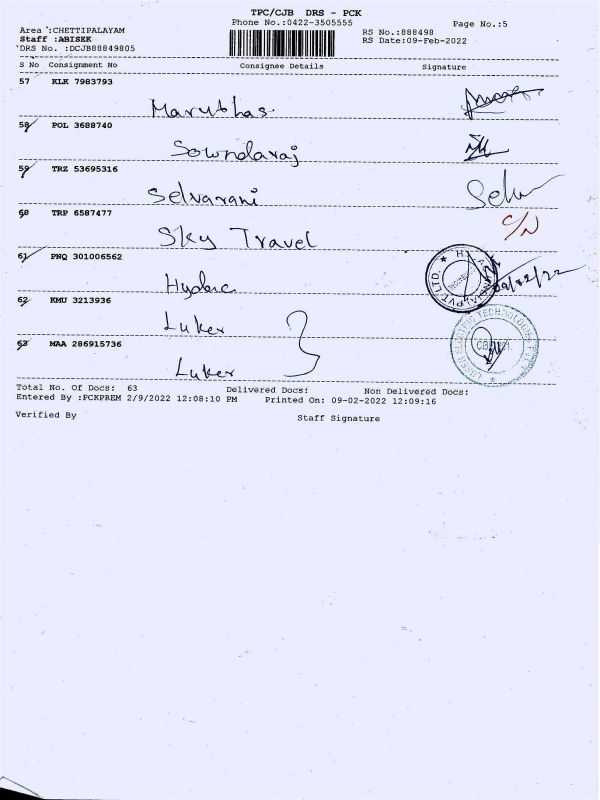 TPC/CJB DRS - PCK
Phone No.:0422-3505555
Page No.:5
Area :CHETTIPALAYAM
Staff :ABISEK
DRS No. :DCJB88849805
RS No.:888498
RS Date:09-Feb-2022
S No Consignment No Consignee Details Signature
57 KLK 7983793
Marubhas
58 POL 3688740
Sowndaraj
59 TRZ 53695316
Selvarani Selv
60 TRP 6587477 C/N
Sky Travel
61 PNQ 301006562
09/02/22
62 KMU 3213936
Luker
63 MAA 286915736
Luker
Total No. Of Docs: 63 Delivered Docs: Non Delivered Docs:
Entered By :PCKPREM 2/9/2022 12:08:10 PM Printed On: 09-02-2022 12:09:16
Verified By Staff Signature